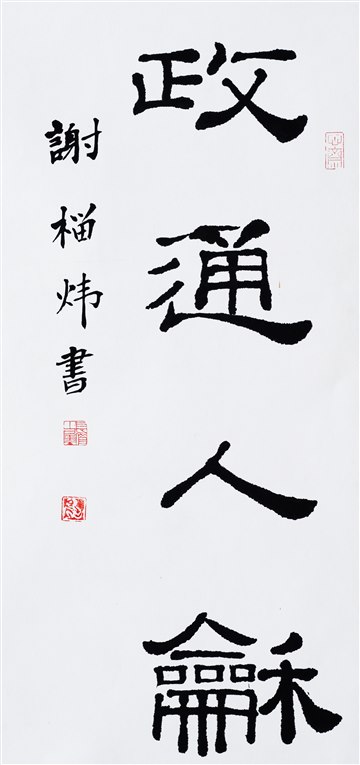 政通人龢
謝榴炜書